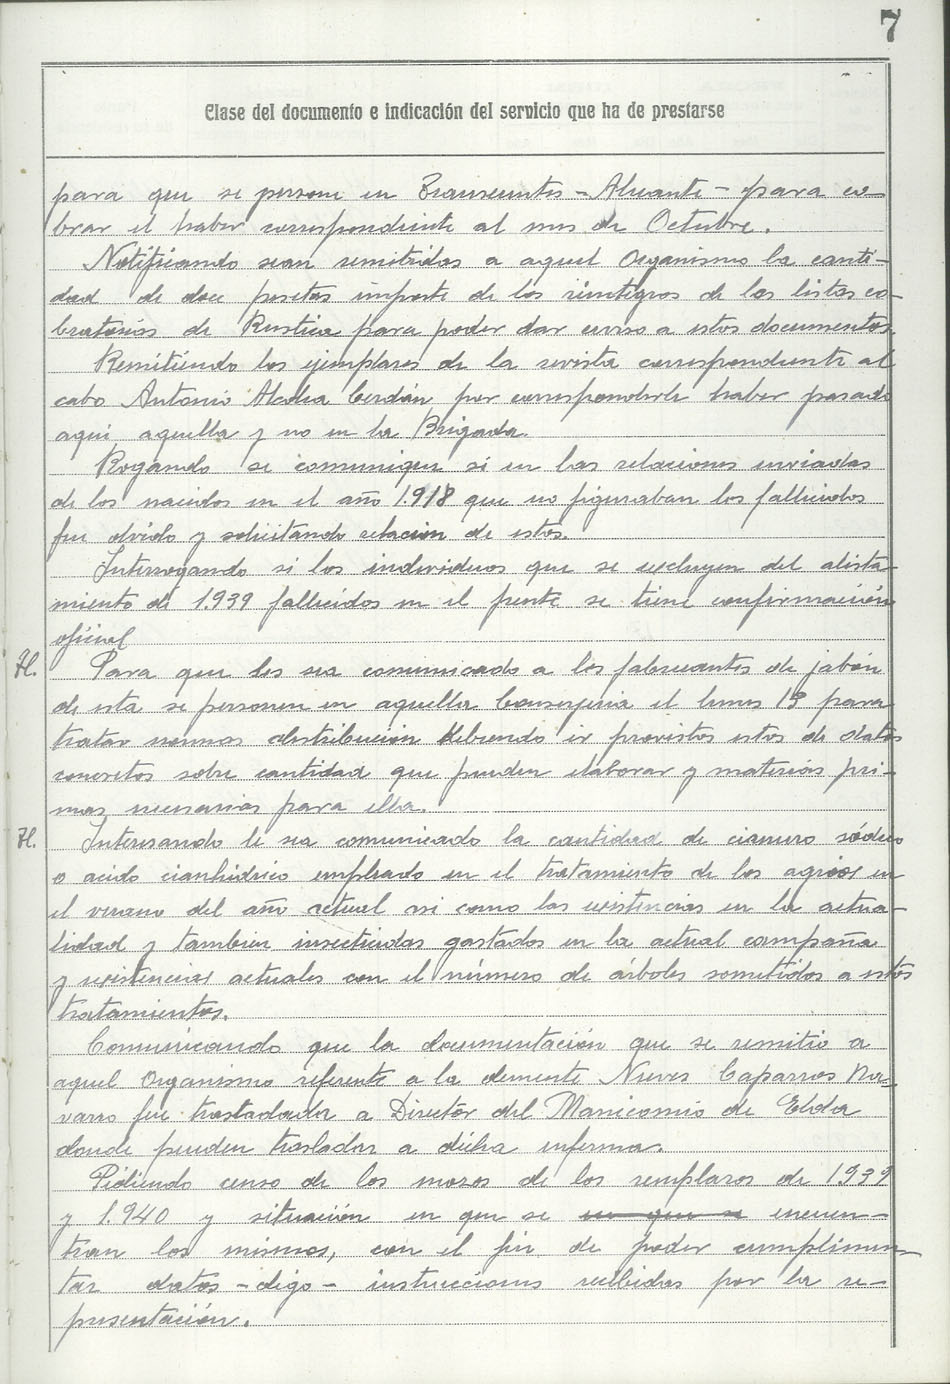 7
Clase del documento e indicación del servicio que ha de prestarse
para que se persone en Transeuntes - Alicante - para co-
brar el haber correspondiente al mes de Octubre.
Notificando sean remitidos a aquel Organismo la canti-
dad de doce pesetas importe de los reintegros de las listas co-
bratorias de Rustica para poder dar curso a estos documentos.
Remitiendo los ejemplares de la revista correspondiente al
cabo Antonio Alcolea Cerdán por corresponderle haber pasado
aqui aquella y no en la Brigada.
Rogando se comunique si en las relaciones enviadas
de los nacidos en el año 1.918 que no figuraban los fallecidos
fue olvido y solicitando relación de estos.
Interrogando si los individuos que se excluyen del alista-
miento de 1.939 fallecidos en el frente se tiene confirmación
oficial
Para que les sea comunicado a los fabricantes de jabón
de esta se personen en aquella Conserjeria el lunes 13 para
tratar normas distribución debiendo ir provistos estos de datos
concretos sobre cantidad que pueden elaborar y materias pri-
mas necesarias para ella.
Interesando le sea comunicado la cantidad de cianuro sódico
o acido cianhidrico empleado en el tratamiento de los agrios en
el verano del año actual asi como las existencias en la actua-
lidad y tambien insecticidas gastados en la actual campaña
y existencias actuales con el número de árboles sometidos a estos
tratamientos.
Comunicando que la documentación que se remitio a
aquel Organismo referente a la demente Nieves Caparros Na-
varro fue trasladada a Director del Manicomio de Elda
donde pueden trasladar a dicha enferma.
Pidiendo censo de los mozos de los remplazos de 1939
y 1.940 y situación en que se en que se encuen-
tran los mismos, con el fin de poder cumplimen-
tar datos - digo - instrucciones recibidas por la re-
presentación.